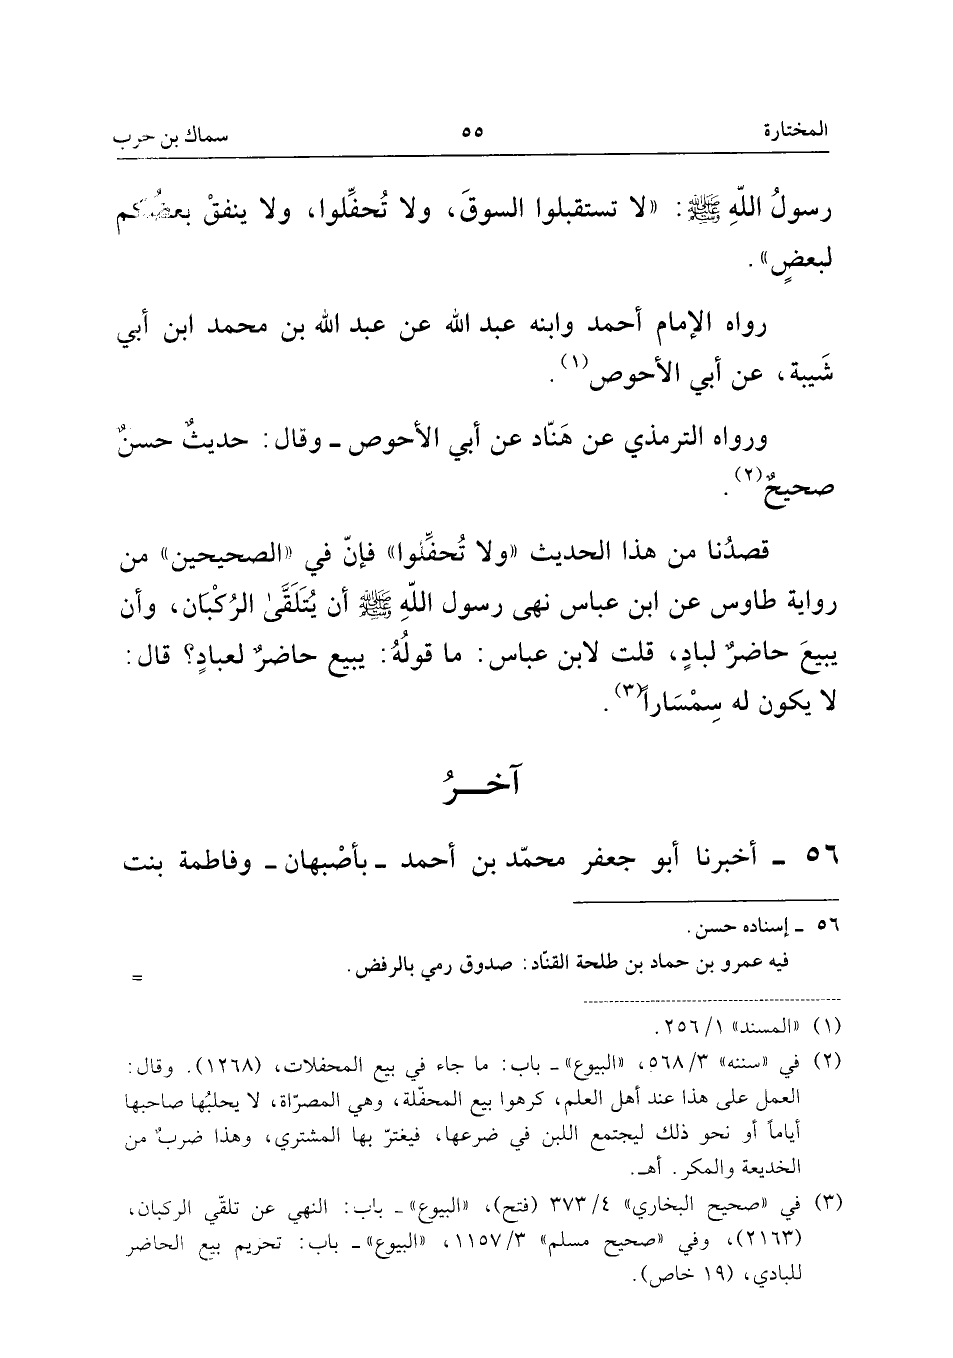 المختارة ٥٥ سماك بن حرب
رسولُ اللّهِ ﷺ: «لا تستقبلوا السوقَ، ولا تُحفِّلوا، ولا ينفقْ بعضُكم
لبعضٍ».
رواه الإمام أحمد وابنه عبد الله عن عبد الله بن محمد ابن أبي
شَيبة، عن أبي الأحوص(١).
ورواه الترمذي عن هَنّاد عن أبي الأحوص ـ وقال: حديثٌ حسنٌ
صحيحٌ(٢).
قصدُنا من هذا الحديث «ولا تُحفِّلوا» فإنّ في «الصحيحين» من
رواية طاوس عن ابن عباس نهى رسول اللّهِ ﷺ أن يُتَلَقَّىٰ الرُكْبَان، وأن
يبيعَ حاضرٌ لبادٍ، قلت لابن عباس: ما قولُهُ: يبيع حاضرٌ لعبادٍ؟ قال:
لا يكون له سِمْسَاراً(٣).
آخـــرُ
٥٦ ـ أخبرنا أبو جعفر محمّد بن أحمد ـ بأصْبهان ـ وفاطمة بنت
٥٦ ـ إسناده حسن.
فيه عمرو بن حماد بن طلحة القنّاد: صدوق رمي بالرفض. =
(١) «المسند» ١/ ٢٥٦.
(٢) في «سننه» ٣/ ٥٦٨، «البيوع» ـ باب: ما جاء في بيع المحفلات، (١٢٦٨). وقال:
العمل على هذا عند أهل العلم، كرهوا بيع المحفّلة، وهي المصرّاة، لا يحلبُها صاحبها
أياماً أو نحو ذلك ليجتمع اللبن في ضرعها، فيغترّ بها المشتري، وهذا ضربٌ من
الخديعة والمكر. أهـ.
(٣) في «صحيح البخاري» ٤/ ٣٧٣ (فتح)، «البيوع» ـ باب: النهي عن تلقّي الركبان،
(٢١٦٣)، وفي «صحيح مسلم» ٣/ ١١٥٧، «البيوع» ـ باب: تحريم بيع الحاضر
للبادي، (١٩ خاص).